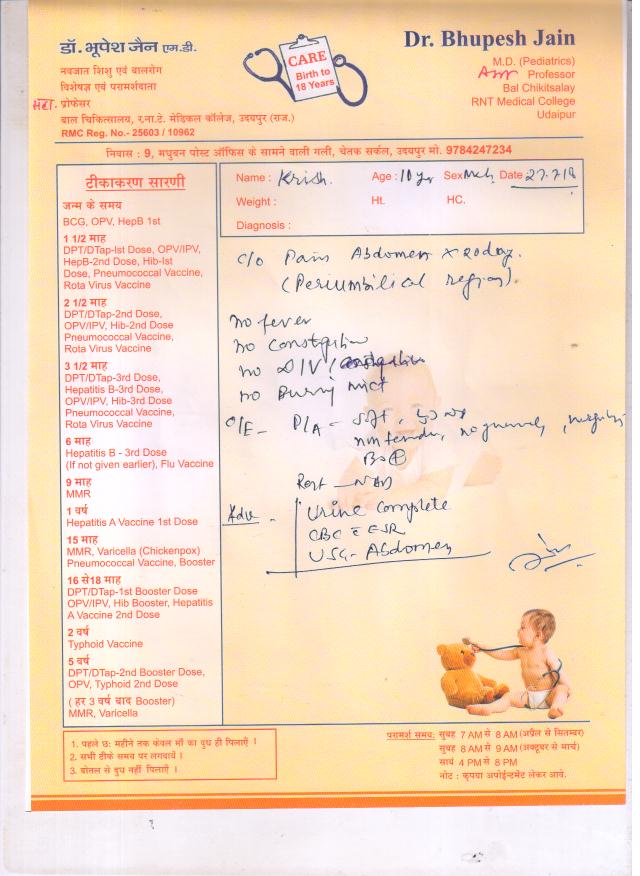 डॉ. भूपेश जैन एम.डी.
नवजात शिशु एवं बालरोग
विशेषज्ञ एवं परामर्शदाता
प्रोफेसर
बाल चिकित्सालय, र.ना.टे. मेडिकल कॉलेज, उदयपुर (राज.)
RMC Reg. No.- 25603 / 10962
CARE
Birth to
18 Years
Dr. Bhupesh Jain
M.D. (Pediatrics)
Professor
Bal Chikitsalay
RNT Medical College
Udaipur
निवास : 9, मधुबन पोस्ट ऑफिस के सामने वाली गली, चेतक सर्कल, उदयपुर मो. 9784247234
टीकाकरण सारणी
जन्म के समय
BCG, OPV, HepB 1st
1 1/2 माह
DPT/DTap-Ist Dose, OPV/IPV,
HepB-2nd Dose, Hib-Ist
Dose, Pneumococcal Vaccine,
Rota Virus Vaccine
2 1/2 माह
DPT/DTap-2nd Dose,
OPV/IPV, Hib-2nd Dose
Pneumococcal Vaccine,
Rota Virus Vaccine
3 1/2 माह
DPT/DTap-3rd Dose,
Hepatitis B-3rd Dose,
OPV/IPV, Hib-3rd Dose
Pneumococcal Vaccine,
Rota Virus Vaccine
6 माह
Hepatitis B - 3rd Dose
(If not given earlier), Flu Vaccine
9 माह
MMR
1 वर्ष
Hepatitis A Vaccine 1st Dose
15 माह
MMR, Varicella (Chickenpox)
Pneumococcal Vaccine, Booster
16 से18 माह
DPT/DTap-1st Booster Dose
OPV/IPV, Hib Booster, Hepatitis
A Vaccine 2nd Dose
2 वर्ष
Typhoid Vaccine
5 वर्ष
DPT/DTap-2nd Booster Dose,
OPV, Typhoid 2nd Dose
( हर 3 वर्ष बाद Booster)
MMR, Varicella
Name : Krish. Age : 10 yr Sex Date
Weight : Ht. HC.
Diagnosis :
C/o Pain Abdomen x
(Periumbilical region).
No fever
No
No
No Burning mict
O/E - P/A - soft,
Rest - NAD
Adv - Urine Complete
CBC ESR
USG - Abdomen
1. पहले छः महीने तक केवल माँ का दुध ही पिलाएँ ।
2. सभी टीके समय पर लगवायें ।
3. बोतल से दुध नहीं पिलाएँ ।
परामर्श समय: सुबह 7 AM से 8 AM (अप्रैल से सितम्बर)
सुबह 8 AM से 9 AM (अक्टूबर से मार्च)
सायं 4 PM से 8 PM
नोट : कृपया अपोईन्टमेंट लेकर आवे.